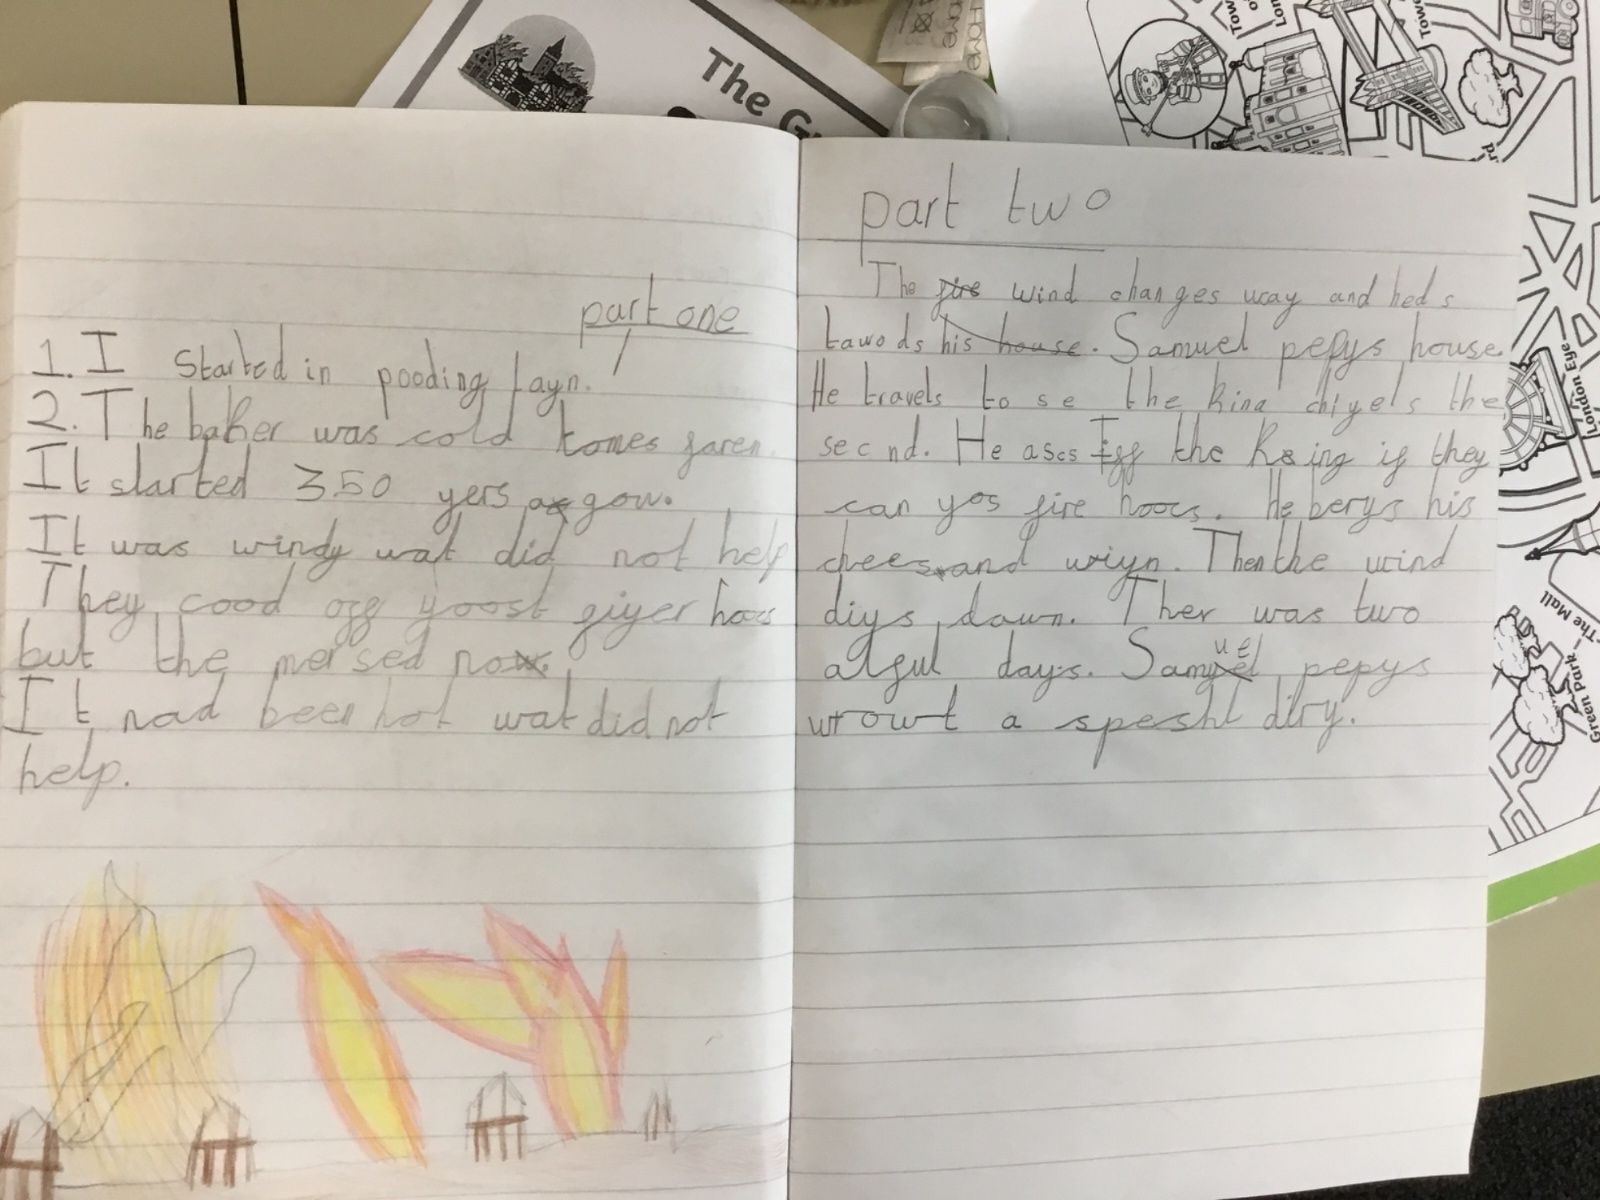 The G
Home
part one
1. I started in pooding layn.
2. The baker was cold tomes faren.
It started 350 yers a gow.
It was windy wat did not help
They cood off yoost fiyer hoocs
but the mersed now.
It had been hot wat did not
help.
part two
The fire wind changes way and heds
tawods his house. Samuel pepys house.
He travels to se the king chlyels the
secnd. He ascs Iff the King if they
can yos fire hoocs. He berys his
chees and wiyn. Then the wind
diys dawn. Ther was two
alful days. Samuel pepys
wrowt a speshl diry.
London Eye
The Mall
Green Park